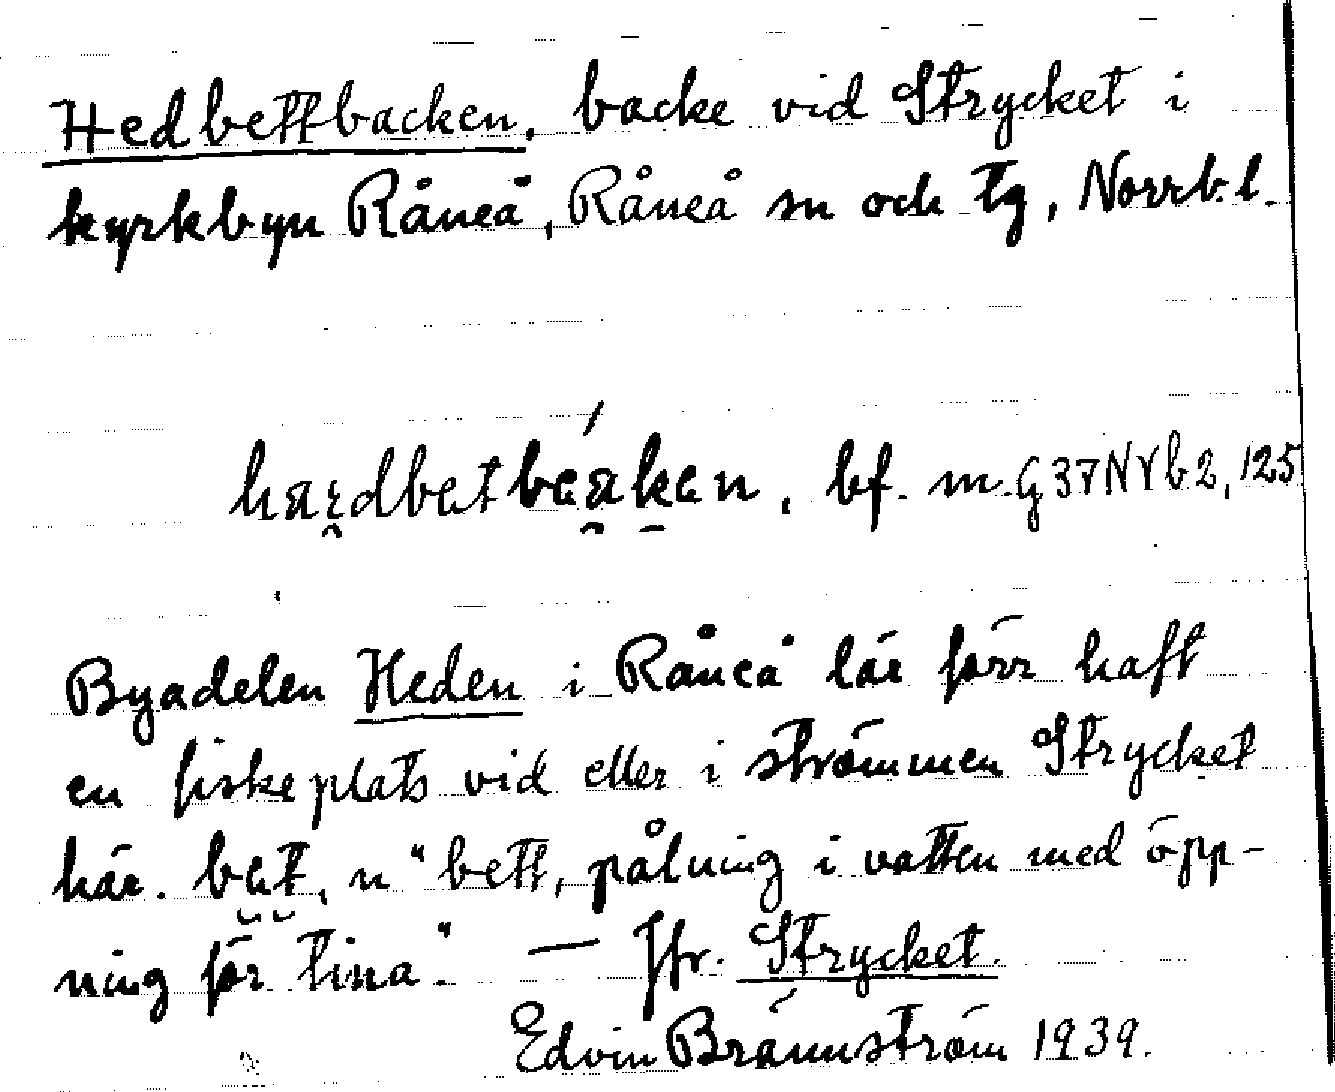 Hedbettbacken, backe vid Strycket i
kyrkbyn Råneå, Råneå sn och tg, Norrb. l.
bf. m. G37NYb2, 125
Byadelen Heden i Råneå lär förr haft
en fiskeplats vid eller i strömmen Strycket
här. bet, n "bett, pålning i vatten med öpp-
ning för tina". — Jfr. Strycket.
Edvin Brännström 1939.